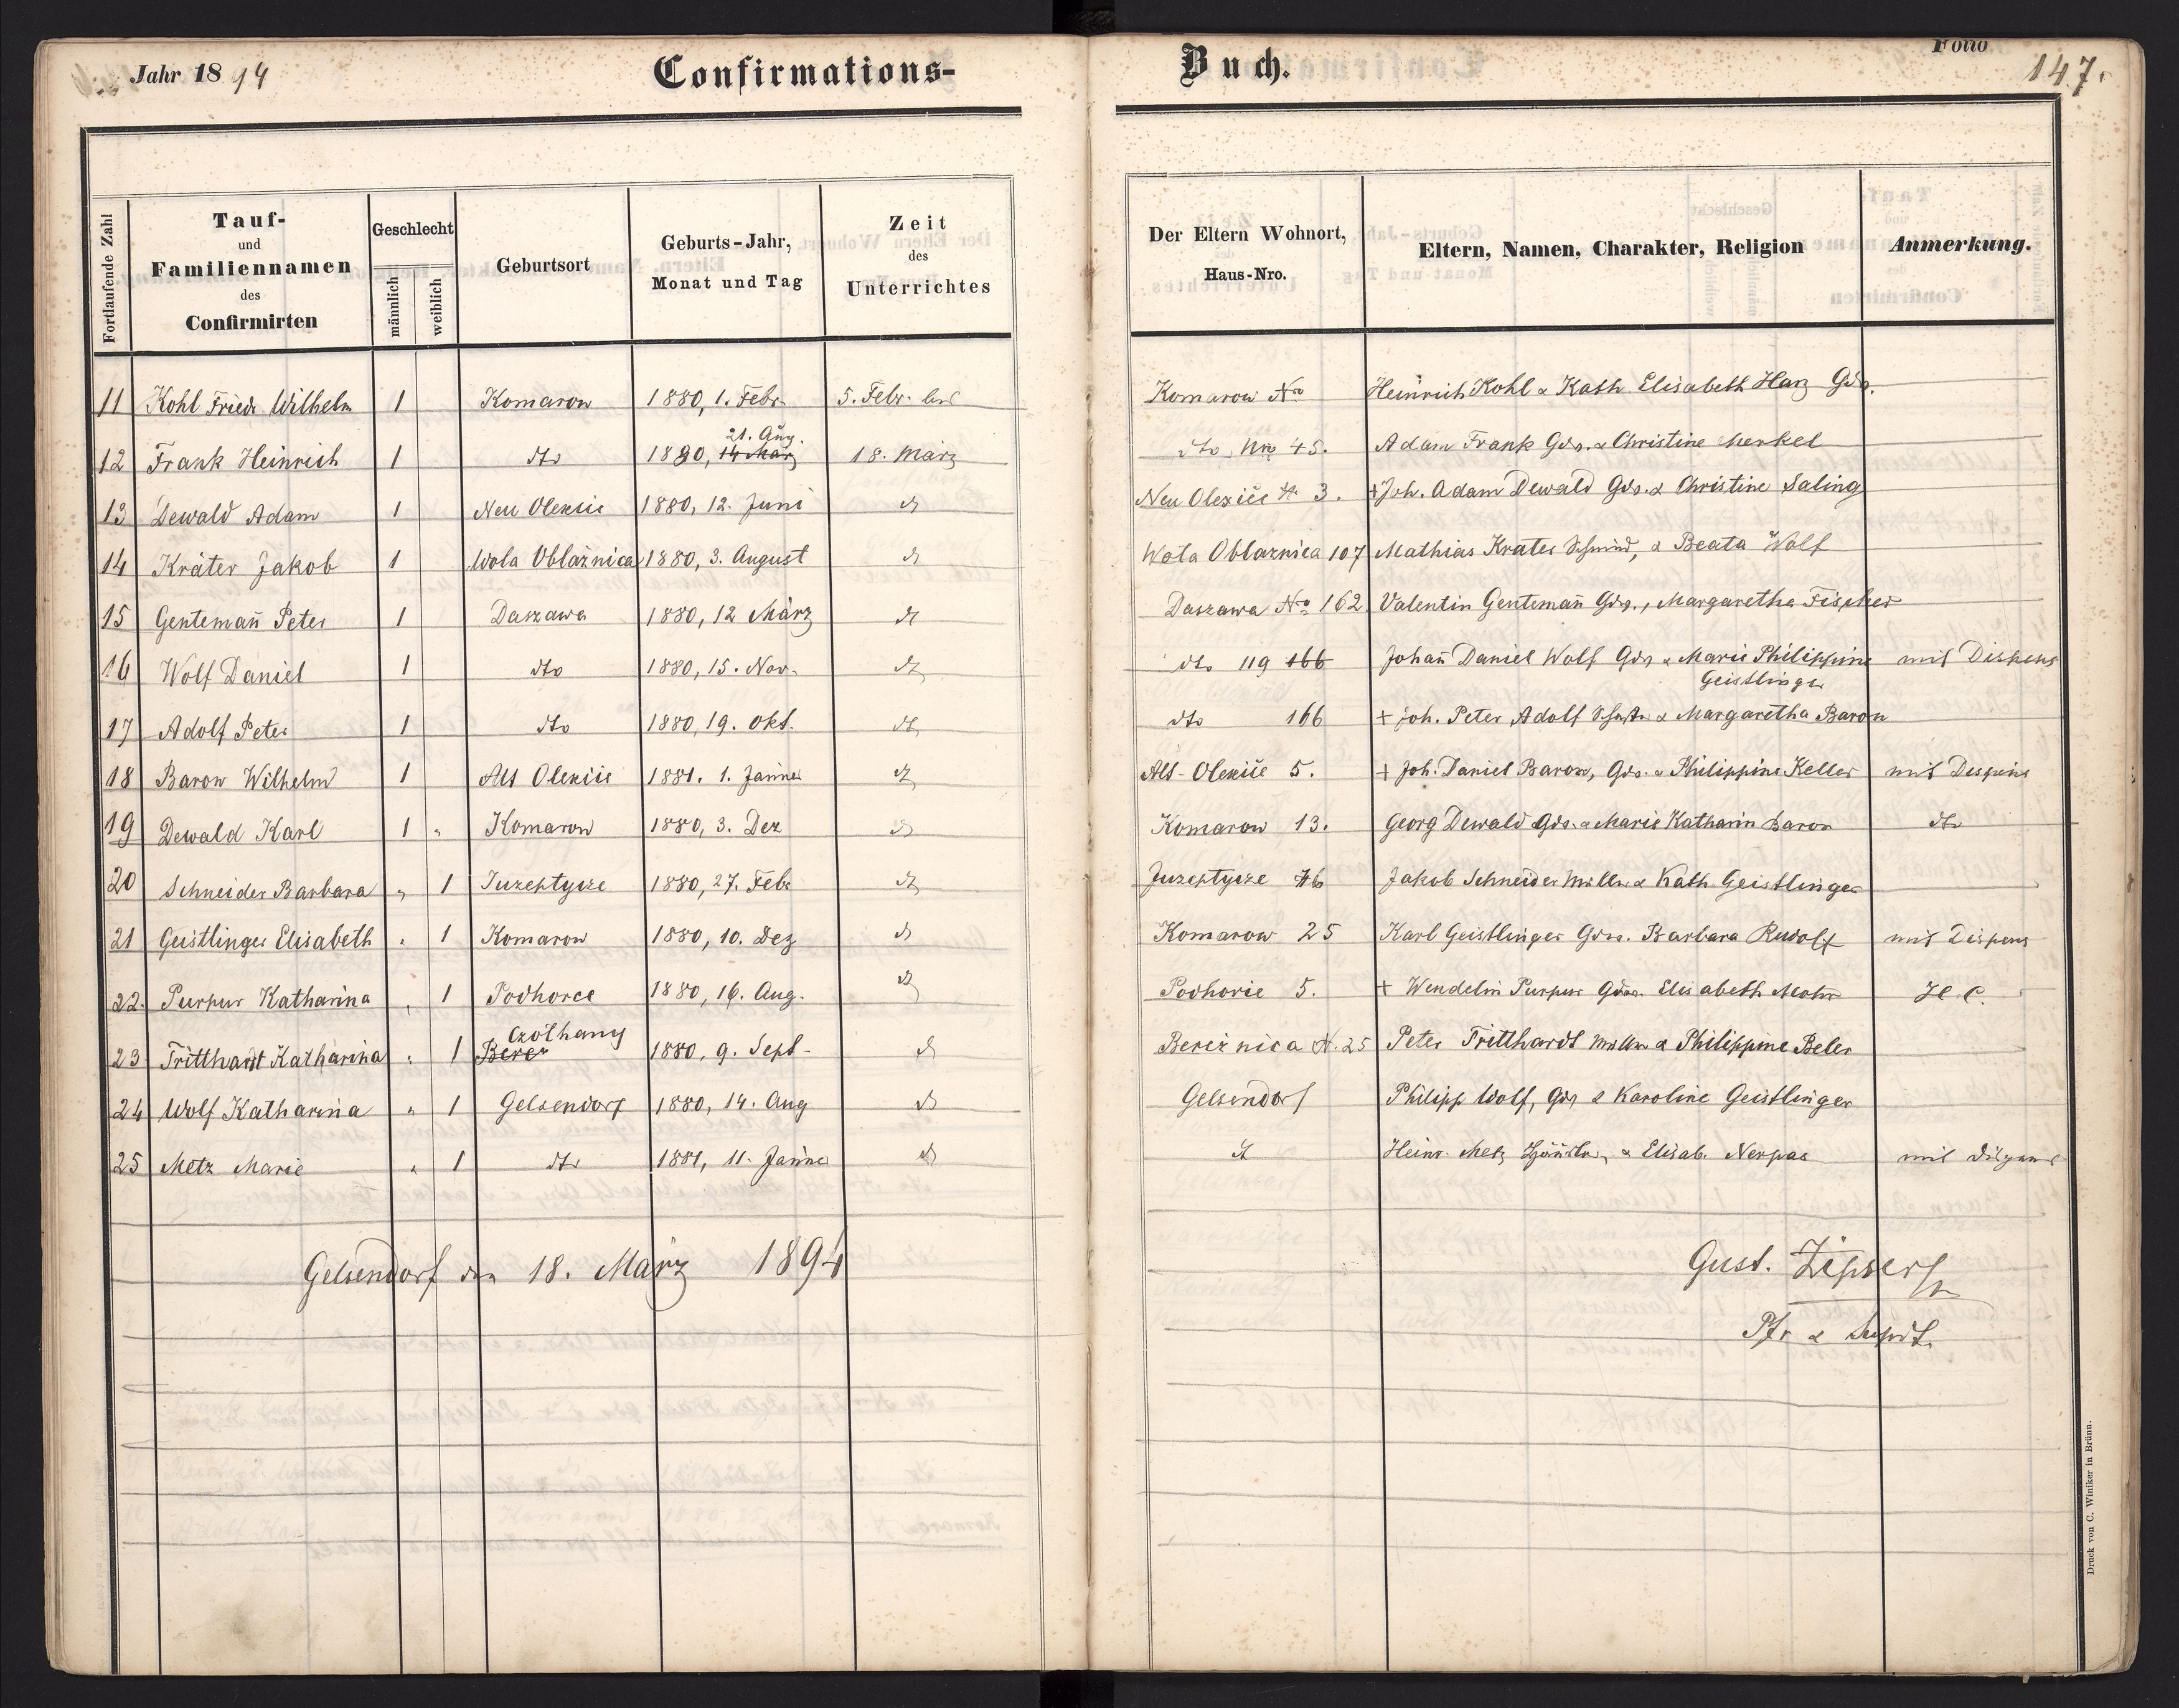 Jahr 1894 Confirmations-
Buch. Folio 147.
Fortlaufende Zahl
Tauf-
und
Familiennamen
des
Confirmirten
Geschlecht
männlich
weiblich
Geburtsort
Geburts-Jahr,
Monat und Tag
Zeit
des
Unterrichtes
Der Eltern Wohnort,
Haus-Nro.
Eltern, Namen, Charakter, Religion
Anmerkung.
11 Kohl Friedr Wilhelm 1 Komarow 1880, 1. Febr. 5. Febr. bis Komarow No Heinrich Kohl & Kath. Elisabeth Harz Gdr.
21. Aug.
12 Frank Heinrich 1 dto 1880, 14 März 18. März dto Nro 45. Adam Frank Gdr. & Christine Merkel
13 Dewald Adam 1 Neu Oleksic 1880, 12. Juni dt Neu Olexice N. 3. + Joh. Adam Dewald Gdr. & Christine Saling
14 Kräter Jakob 1 Wola Oblaźnica 1880, 3. August dt Wola Oblaznica 107 Mathias Krater Schmied, & Beata Wolf
15 Gentemañ Peter 1 Daszawa 1880, 12 März dt Daszawa No 162 Valentin Gentemañ Gdr., Margaretha Fischer
16 Wolf Daniel 1 dto 1880, 15. Nov. dt dto 119 166 Johañ Daniel Wolf Gdr & Marie Philippine mit Dispens
Geistlinger
17 Adolf Peter 1 dto 1880, 19. Okt. dt dto 166 + Joh. Peter Adolf & Margaretha Baron
18 Baron Wilhelm 1 Alt Olexice 1881. 1. Jänner dt Alt-Olexice 5. + Joh. Daniel Baron, Gdr. & Philippine Keller mit Dispens
19 Dewald Karl 1 " Komarow 1880, 3. Dez dt Komarow 13. Georg Dewald Gdr. & Marie Katharin Baron dto
20 Schneider Barbara " 1 Juzeptycze 1880, 27. Febr dt Juzeptycze 76 Jakob Schneider Müller & Kath. Geistlinger
21 Geistlinger Elisabeth " 1 Komarow 1880, 10. Dez dt Komarow 25 Karl Geistlinger Gdr. Barbara Rudolf mit Dispens
22. Purpur Katharina " 1 Podhorce 1880, 16. Aug. dt Podhorie 5. + Wendelin Purpur Gdr. Elisabeth Mohr H. C.
Czolhany
23 Tritthardt Katharina " 1 Bere 1880, 9. Sept. dt Bereżnica N. 25 Peter Tritthardt Müller & Philippine Beler
24 Wolf Katharina " 1 Gelsendorf 1880, 14. Aug dt Gelsendorf Philipp Wolf, Gdr & Karoline Geistlinger
25 Metz Marie " 1 dto 1881, 11. Jänner dt dt Heinr. Metz & Elisab. Nerpas mit Dispens
Gelsendorf den 18. März 1894
Gust. Zipser
Pfr & Supdt.
Druck von C. Winiker in Brünn.